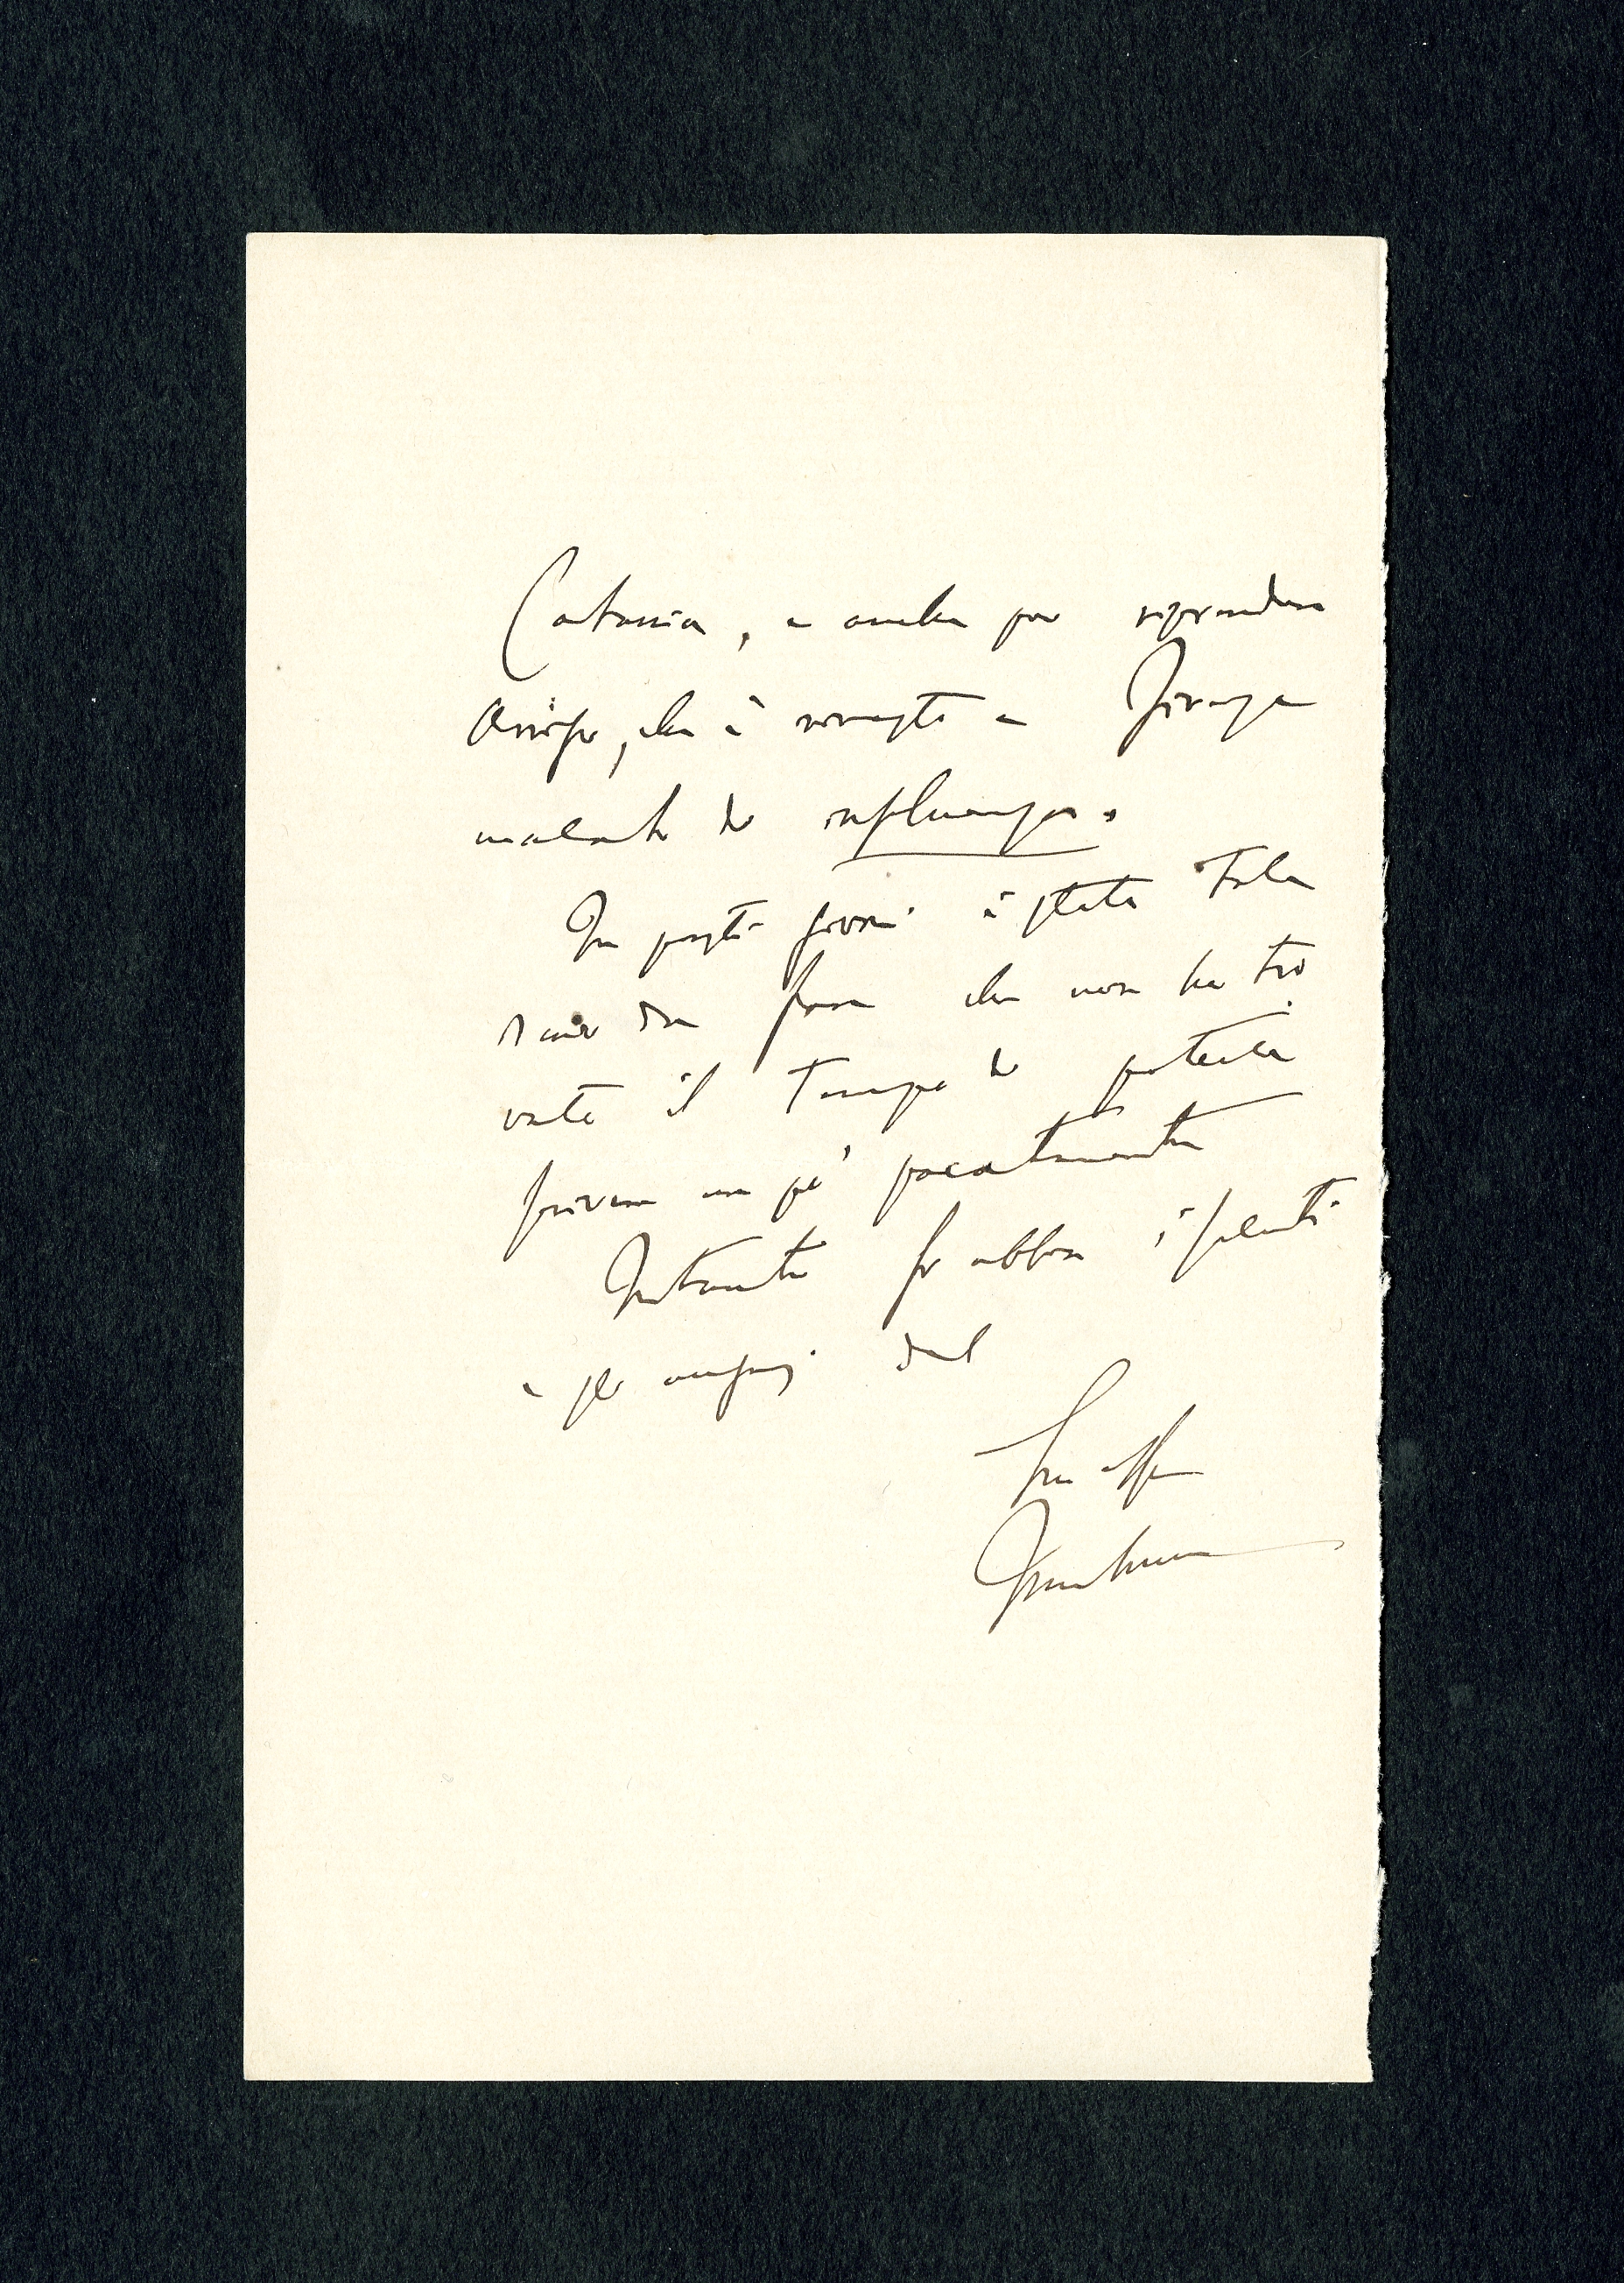 Catania, e anche per riprendere
Arrigo, che è rimasto a Firenze
malato di influenza.
In questi giorni è stato tale
da fare che non ho tro
vato il tempo di poterle
scrivere un po' pacatamente
Intanto si abbia i saluti
e gli auguri del
Suo aff